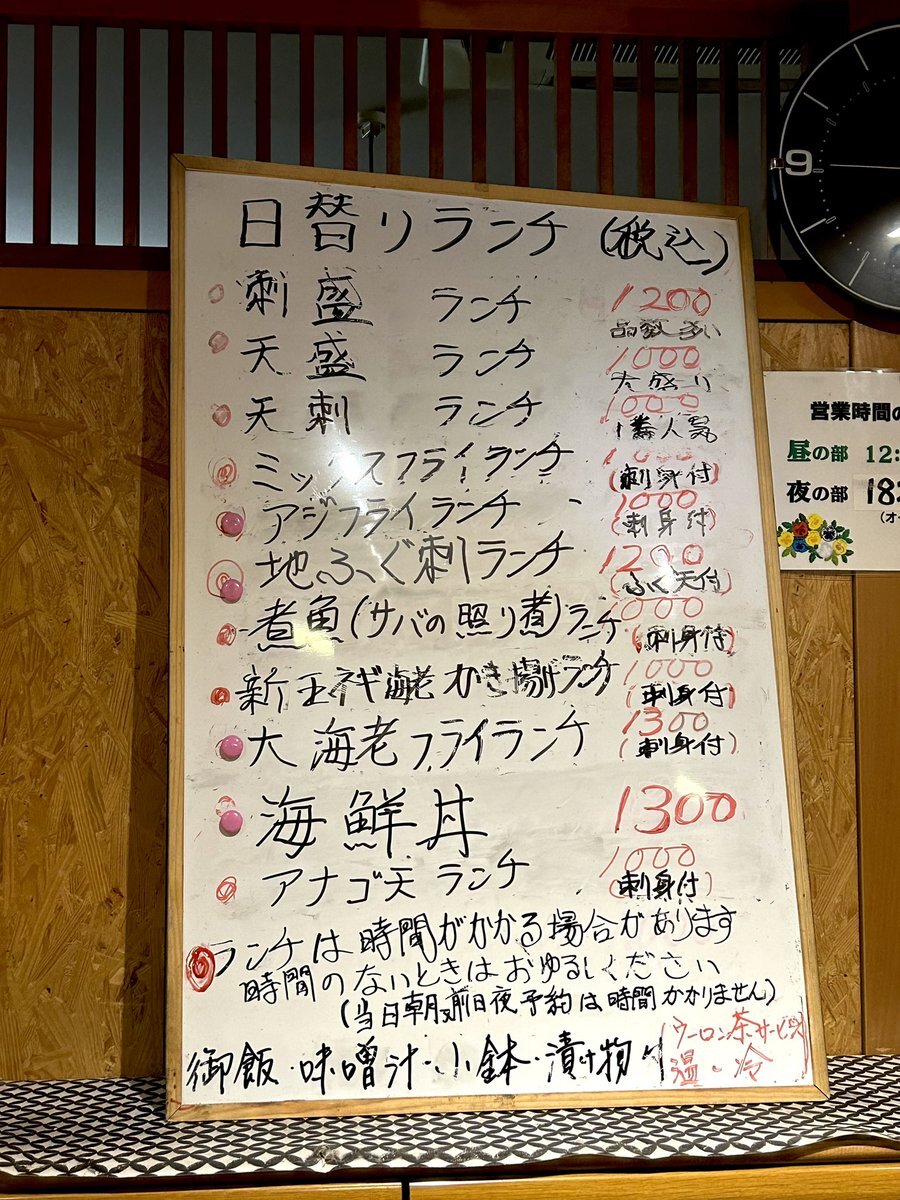 日替りランチ (税込)
刺盛 ランチ 1200
品数多い
天盛 ランチ 1000
大盛り
天刺 ランチ 1000
1番人気
ミックスフライランチ 1000
(刺身付)
アジフライランチ 1000
(刺身付)
地ふぐ刺ランチ 1200
(ふぐ天付)
煮魚(サバの照り煮)ランチ 1000
(刺身付)
新玉ネギ海老かき揚げランチ 1000
(刺身付)
大海老フライランチ 1300
(刺身付)
海鮮丼 1300
アナゴ天ランチ 1000
(刺身付)
ランチは時間がかかる場合があります
時間のないときはおゆるしください
(当日朝、前日夜予約は時間かかりません)
御飯・味噌汁・小鉢・漬け物付
(ウーロン茶サービス
温・冷)
9
営業時間の
昼の部 12:
夜の部 18
(オ